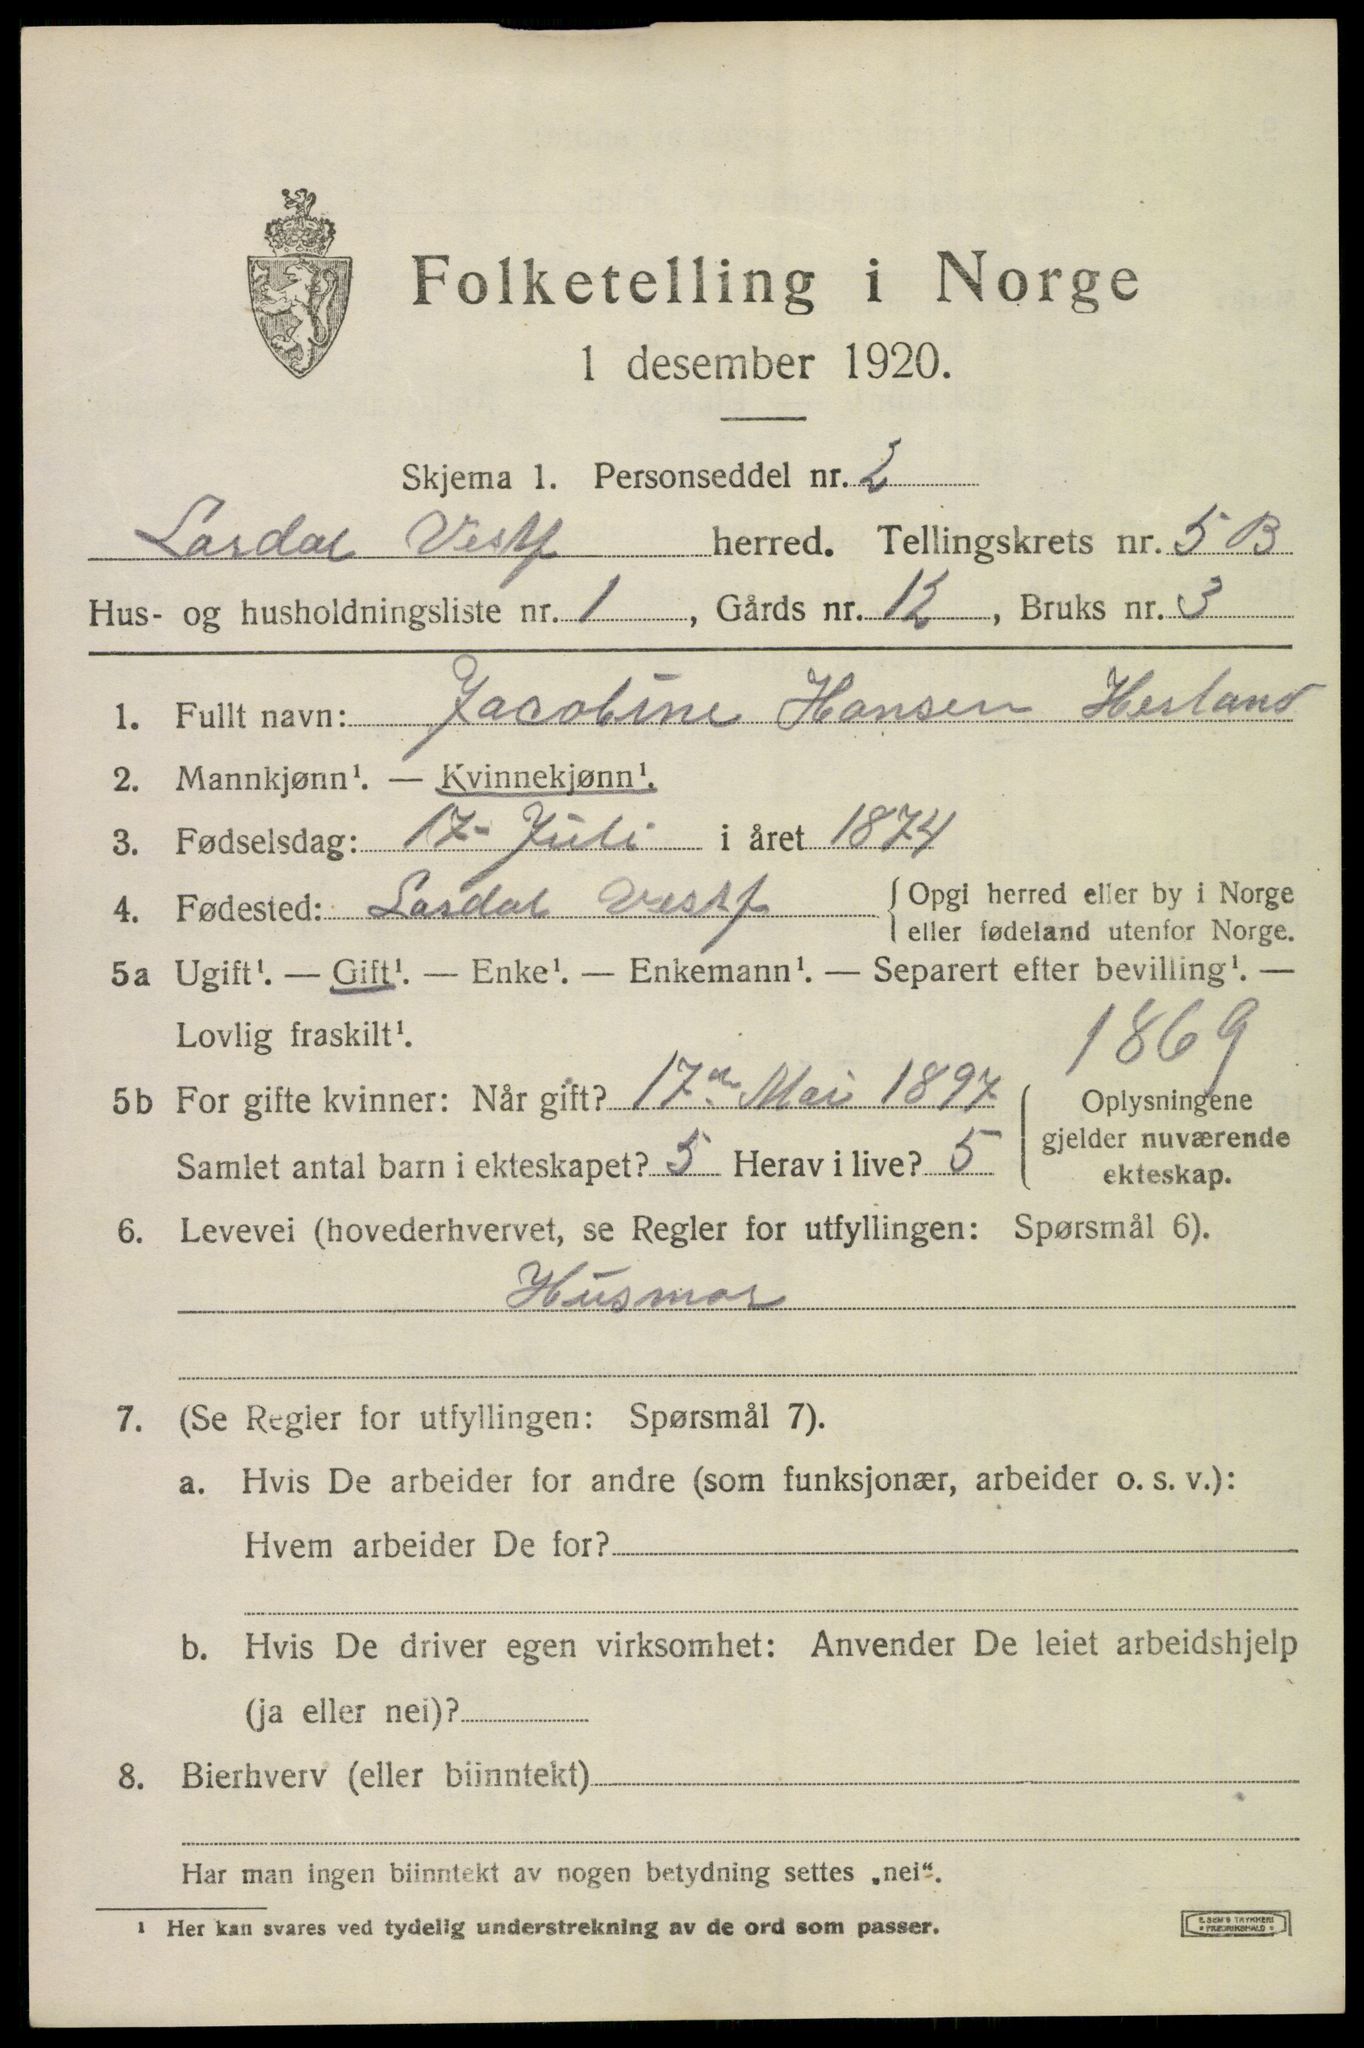 Folketelling i Norge
1 desember 1920.
Skjema 1. Personseddel nr. 2
Lardal Vestf herred. Tellingskrets nr. 5 B
Hus- og husholdningsliste nr. 1, Gårds nr. 12, Bruks nr. 3
1. Fullt navn: Jacobine Hansen Herland
2. Mannkjønn¹. — Kvinnekjønn¹.
3. Fødselsdag: 17- Juli i året 1874
4. Fødested: Lardal Vestf { Opgi herred eller by i Norge
eller fødeland utenfor Norge.
5a Ugift¹. — Gift¹. — Enke¹. — Enkemann¹. — Separert efter bevilling¹. —
Lovlig fraskilt¹.
1869
5b For gifte kvinner: Når gift? 17de Mai 1897
Samlet antal barn i ekteskapet? 5 Herav i live? 5
Oplysningene
gjelder nuværende
ekteskap.
6. Levevei (hovederhvervet, se Regler for utfyllingen: Spørsmål 6).
Husmor
7. (Se Regler for utfyllingen: Spørsmål 7).
a. Hvis De arbeider for andre (som funksjonær, arbeider o. s. v.):
Hvem arbeider De for?
b. Hvis De driver egen virksomhet: Anvender De leiet arbeidshjelp
(ja eller nei)?
8. Bierhverv (eller biinntekt)
Har man ingen biinntekt av nogen betydning settes „nei“.
¹ Her kan svares ved tydelig understrekning av de ord som passer.
E. SEM'S TRYKKERI
FREDRIKSHALD